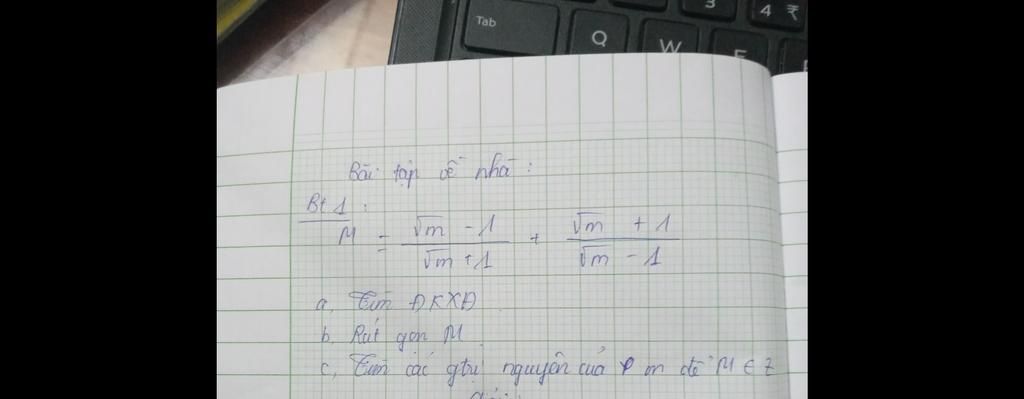 Tab
Q
W
E
3
4 ₹
Bài tập về nhà :
Bt 1 :
M = (√m - 1)/(√m + 1) + (√m + 1)/(√m - 1)
a, Tìm ĐKXĐ
b, Rút gọn M
c, Tìm các gtrị nguyên của m để M ∈ Z